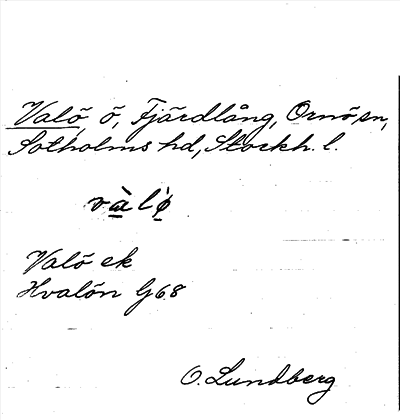 Valö, ö, Fjärdlång, Ornö sn,
Sotholms hd, Stockh. l.
vàlǿ̣
Valö ek
Hvalön G68
O. Lundberg